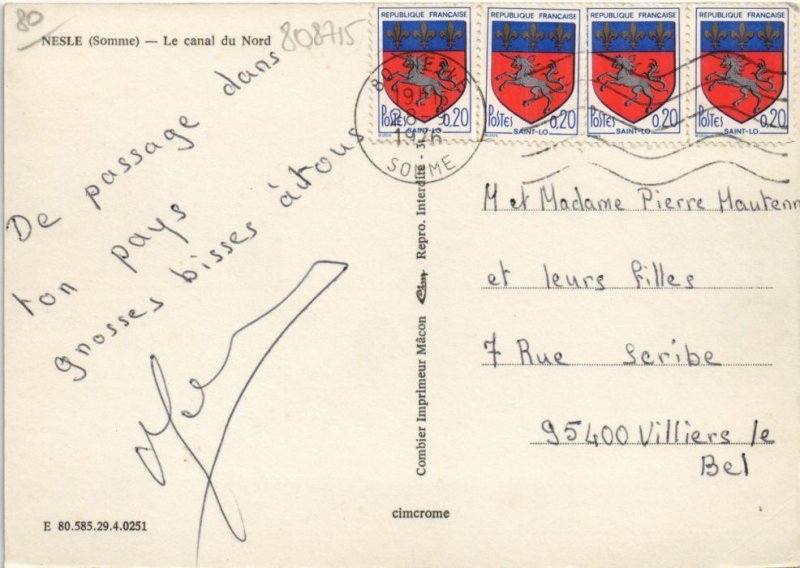 80
NESLE (Somme) — Le canal du Nord
808715
De passage dans
ton pays
grosses bisses à tous
RÉPUBLIQUE FRANÇAISE
POSTES 0,20
SAINT-LO
RÉPUBLIQUE FRANÇAISE
POSTES 0,20
SAINT-LO
RÉPUBLIQUE FRANÇAISE
POSTES 0,20
SAINT-LO
RÉPUBLIQUE FRANÇAISE
POSTES 0,20
SAINT-LO
80
19H
1976
SOMME
Combier Imprimeur Mâcon Repro. Interdite -
M et Madame Pierre Hautenn
et leurs filles
7 Rue Scribe
95400 Villiers le
Bel
E 80.585.29.4.0251
cimcrome